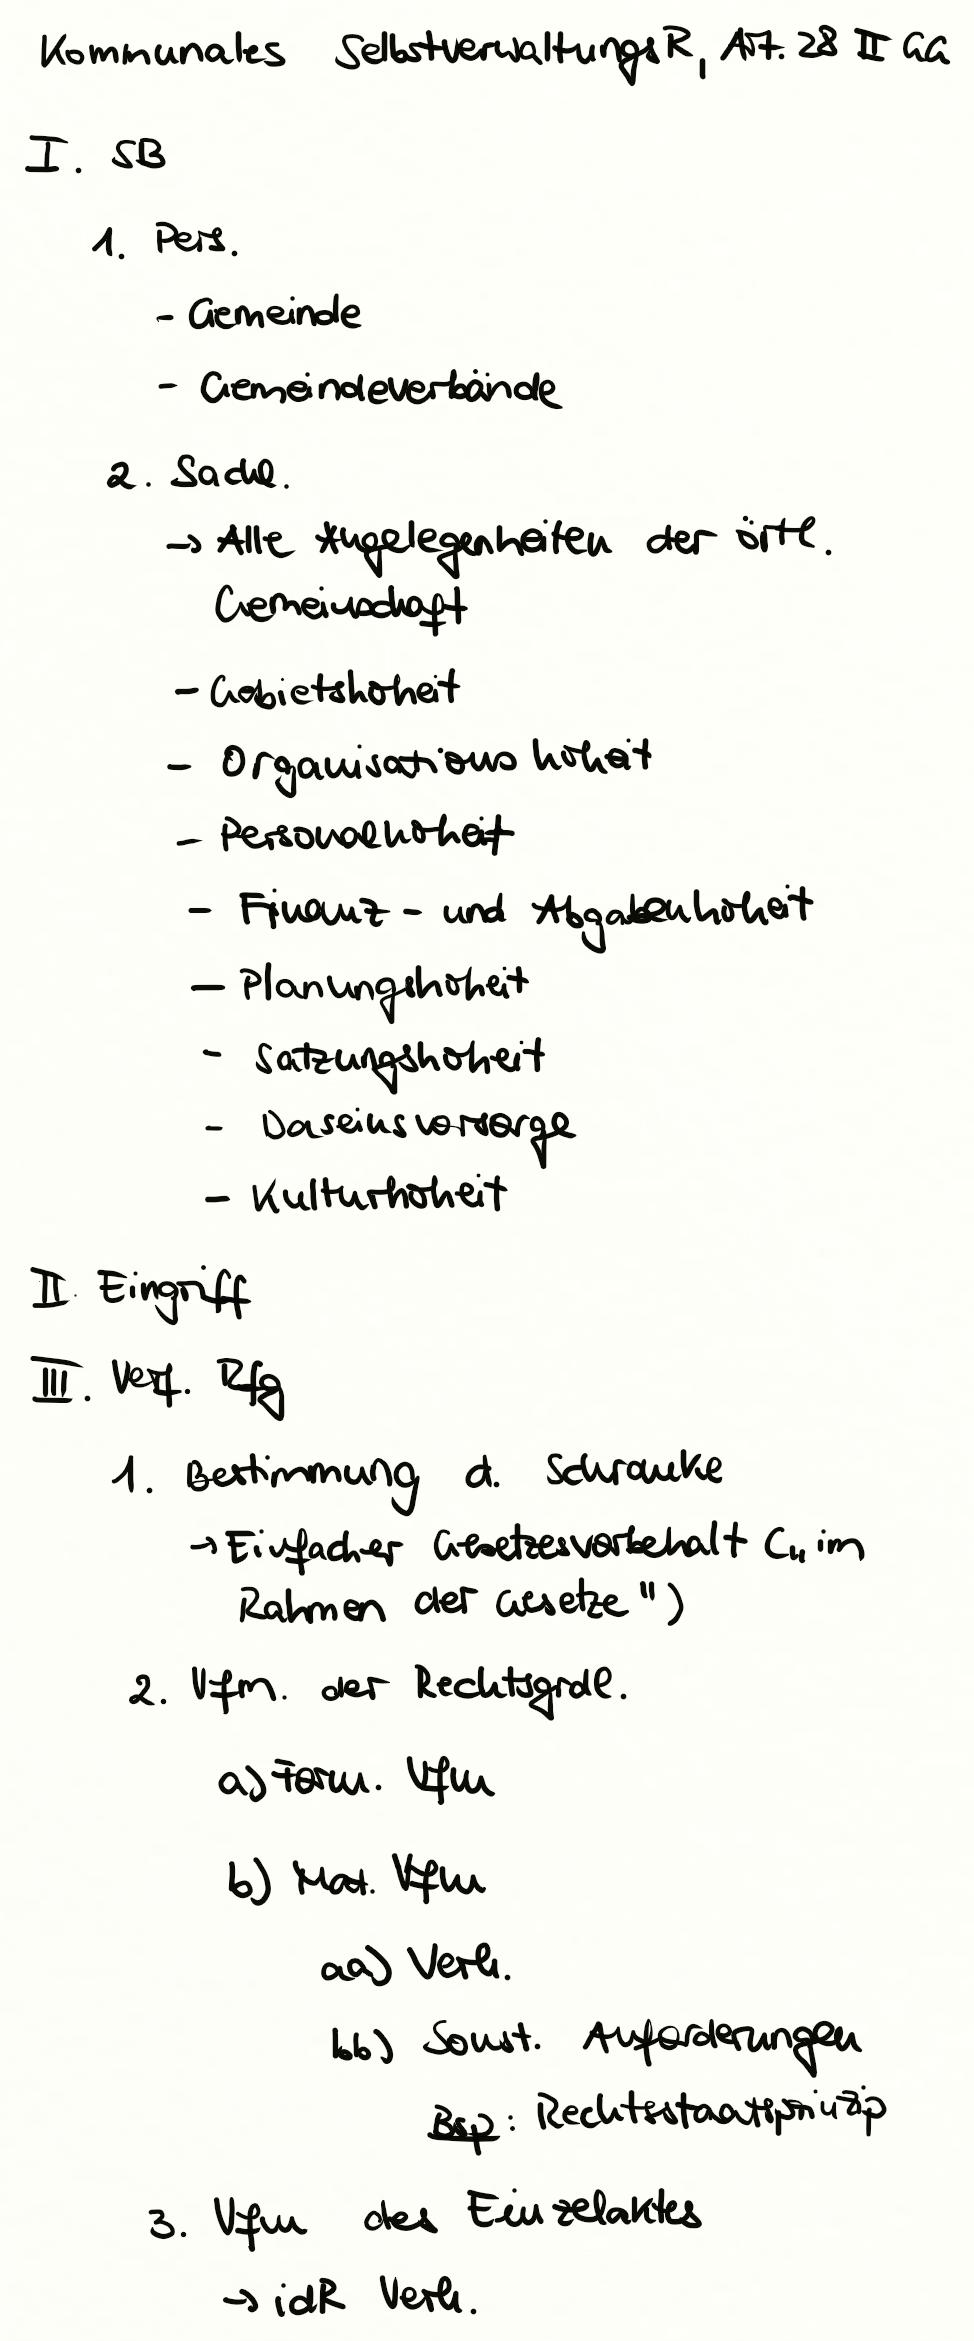 Kommunales SelbstverwaltungsR, Art. 28 II GG
I. SB
1. Pers.
- Gemeinde
- Gemeindeverbände
2. Sachl.
→ Alle Angelegenheiten der örtl.
Gemeinschaft
- Gebietshoheit
- Organisationshoheit
- Personalhoheit
- Finanz- und Abgabenhoheit
- Planungshoheit
- Satzungshoheit
- Daseinsvorsorge
- Kulturhoheit
II. Eingriff
III. Verf. Rfg
1. Bestimmung d. Schranke
→ Einfacher Gesetzesvorbehalt („im
Rahmen der Gesetze")
2. Vfm. der Rechtsgrdl.
a) Form. Vfm
b) Mat. Vfm
aa) Verh.
bb) Sonst. Anforderungen
Bsp: Rechtsstaatsprinzip
3. Vfm des Einzelaktes
→ idR Verh.